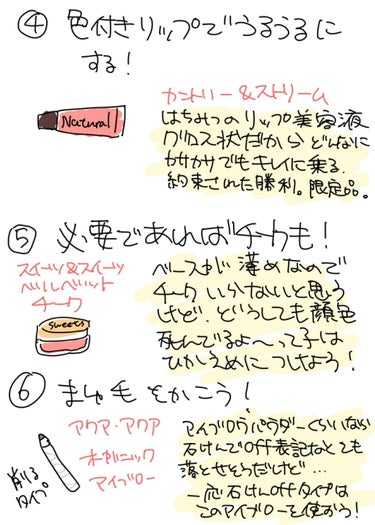 ④ 色付きリップでうるうるに
する！
Natural
カントリー&ストリーム
はちみつのリップ美容液
グロス状だから どんなに
カサカサでもキレイに乗る.
約束された勝利。限定品。
⑤ 必要であればチークも！
スイーツ&スイーツ
ベルベット
チーク
sweets
ベースが 薄めなので
チーク いらないと思う
けど、どうしても顔色
死んでるよ〜って子は
ひかえめに つけよう！
⑥ まゆ毛 をかこう！
アクア・アクア
オーガニック
アイブロー
削る
タイプ
アイブロウパウダーくらいなら
石けんでoff表記なくても
落とせそうだけど…
一応 石けんoffタイプは
このアイブローを使かう！